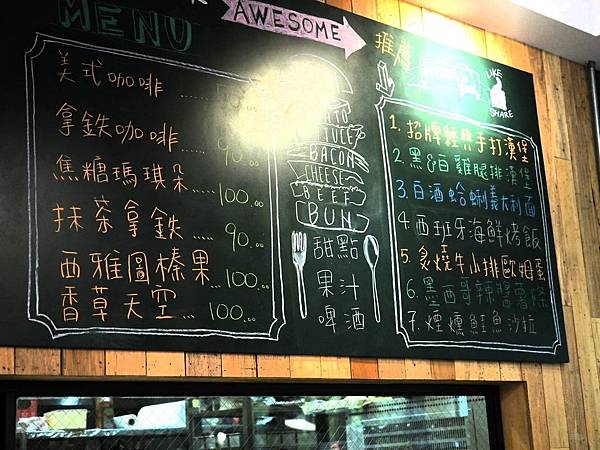 MENU
AWESOME
推薦
LIKE
SHARE
美式咖啡
拿鐵咖啡...... 90.00
焦糖瑪琪朵..... 100.00
抹茶拿鐵..... 90.00
西雅圖榛果...100.00
香草天空... 100.00
BACON
CHEESE
BEEF
BUN
甜點
果汁
啤酒
1. 招牌經典手打漢堡
2. 黑&白雞腿排漢堡
3. 白酒蛤蜊義大利面
4. 西班牙海鮮烤飯
5. 炙燒牛小排歐姆蛋
6. 墨西哥辣醬薯條
7. 煙燻鮭魚沙拉